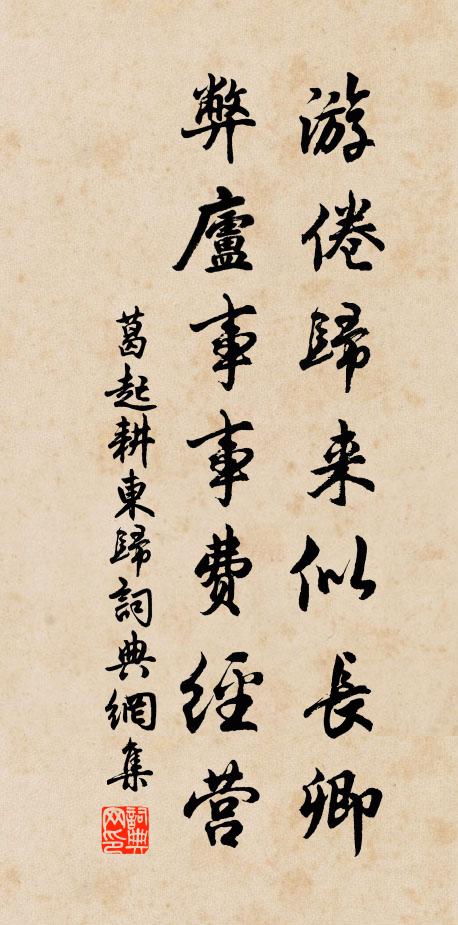 游倦歸来似長卿
弊廬事事費經营
葛起耕東歸詞典網集
詞典網印